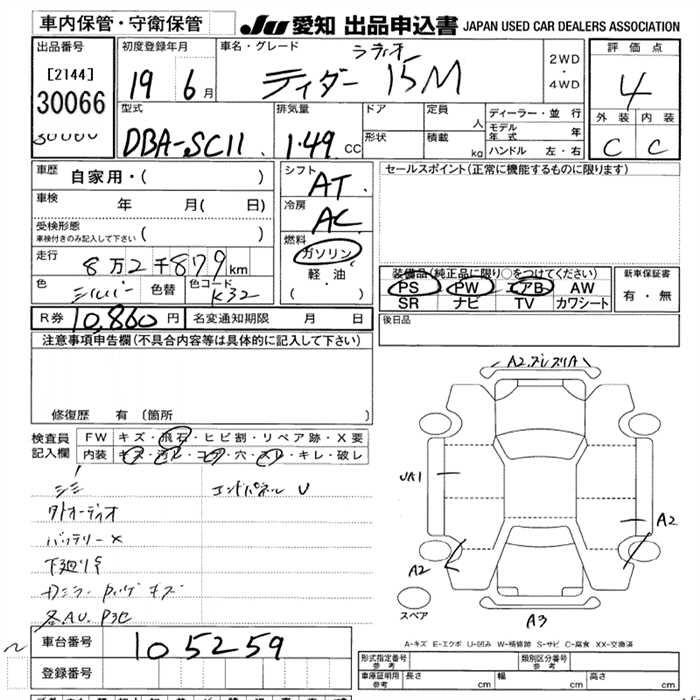 車内保管・守衛保管
JU 愛知 出品申込書 JAPAN USED CAR DEALERS ASSOCIATION
出品番号
[2144]
30066
初度登録年月
19 6月
車名・グレード
ラティオ
ティダー 15M
2WD
・
4WD
評価点
4
外装 内装
C C
型式
DBA-SC11
排気量
1.49 CC
ドア
形状
定員
人
積載
kg
ディーラー・並行
モデル年式 年
ハンドル 左・右
車歴
自家用・( )
車検
年 月( 日)
受検形態
車検付きのみ記入して下さい ( )
走行
8万2千879km
色
シルバー
色替
色コード
K32
シフト
AT
冷房
AC
燃料
ガソリン
軽油
( ・ )
セールスポイント(正常に機能するものに限ります)
装備品(純正品に限り○をつけてください)
PS PW エアB AW
SR ナビ TV カワシート
新車保証書
有・無
R券 10,860円 名変通知期限 月 日
後日品
注意事項申告欄(不具合内容等は具体的に記入して下さい)
修復歴 有(箇所 )
検査員
記入欄
FW キズ・飛石・ヒビ割・リペア跡・X要
内装 キズ・汚レ・コゲ・穴・スレ・キレ・破レ
シミ
エンドパネル U
外オーディオ
バッテリー×
下廻りサ
各AU P3C
A2
UA1
A2
A2
A3
スペア
A-キズ E-エクボ U-凹み W-補修跡 S-サビ C-腐食 XX-交換済
車台番号
105259
登録番号
形式指定番号
参考
類別区分番号
参考
車庫証明用
参考
長さ cm 幅 cm 高さ cm